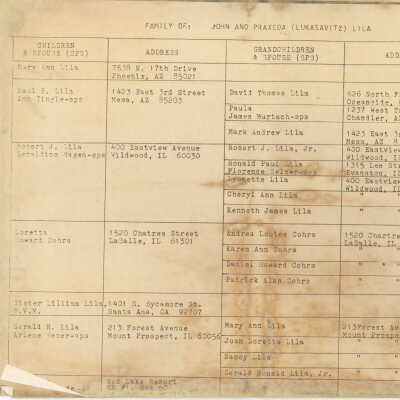 FAMILY OF: JOHN AND PRAXEDA (LUKASAVITZ) LILA
CHILDREN & SPOUSE (SPS)
ADDRESS
GRANDCHILDREN & SPOUSE (SPS)
Mary Ann Lila
7638 N. 17th Drive
Phoenix, AZ 85021
Paul S. Lila
Ann Tingle-sps
1423 East 3rd Street
Mesa, AZ 85203
David Thomas Lila
626 North
Oceanside,
Paula
James Murtach-sps
1237 West
Chandler,
Mark Andrew Lila
1423 East
Mesa, AZ
Robert J. Lila
Geraldine Hagen-sps
400 Eastview Avenue
Wildwood, IL 60030
Robert J. Lila, Jr.
400 Eastview
Wildwood,
Ronald Paul Lila
Florence Selzer-sps
1315 Lee
Evanston,
Lynnette Lila
400 Eastview
Wildwood,
Cheryl Ann Lila
" "
Kenneth James Lila
" "
Loretta
Howard Cohrs
1520 Chatres Street
LaSalle, IL 61301
Andrea Louise Cohrs
1520
LaSalle, IL
Karen Ann Cohrs
Daniel Howard Cohrs
" " "
Patrick Alan Cohrs
" "
Sister Lillian Lila,
B.V.M.
1401 N. Sycamore
Santa Ana, CA 92707
Gerald R. Lila
Arlene Weber-sps
213 Forest Avenue
Mount Prospect, IL 60056
Mary Ann Lila
213 Forest
Mount Prospect
Joan Loretta Lila
" "
Nancy Lila
" "
Gerald Ronald Lila, Jr.
" "
Lake Resort